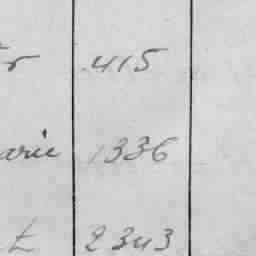 r 415
arie 1336
t 2343